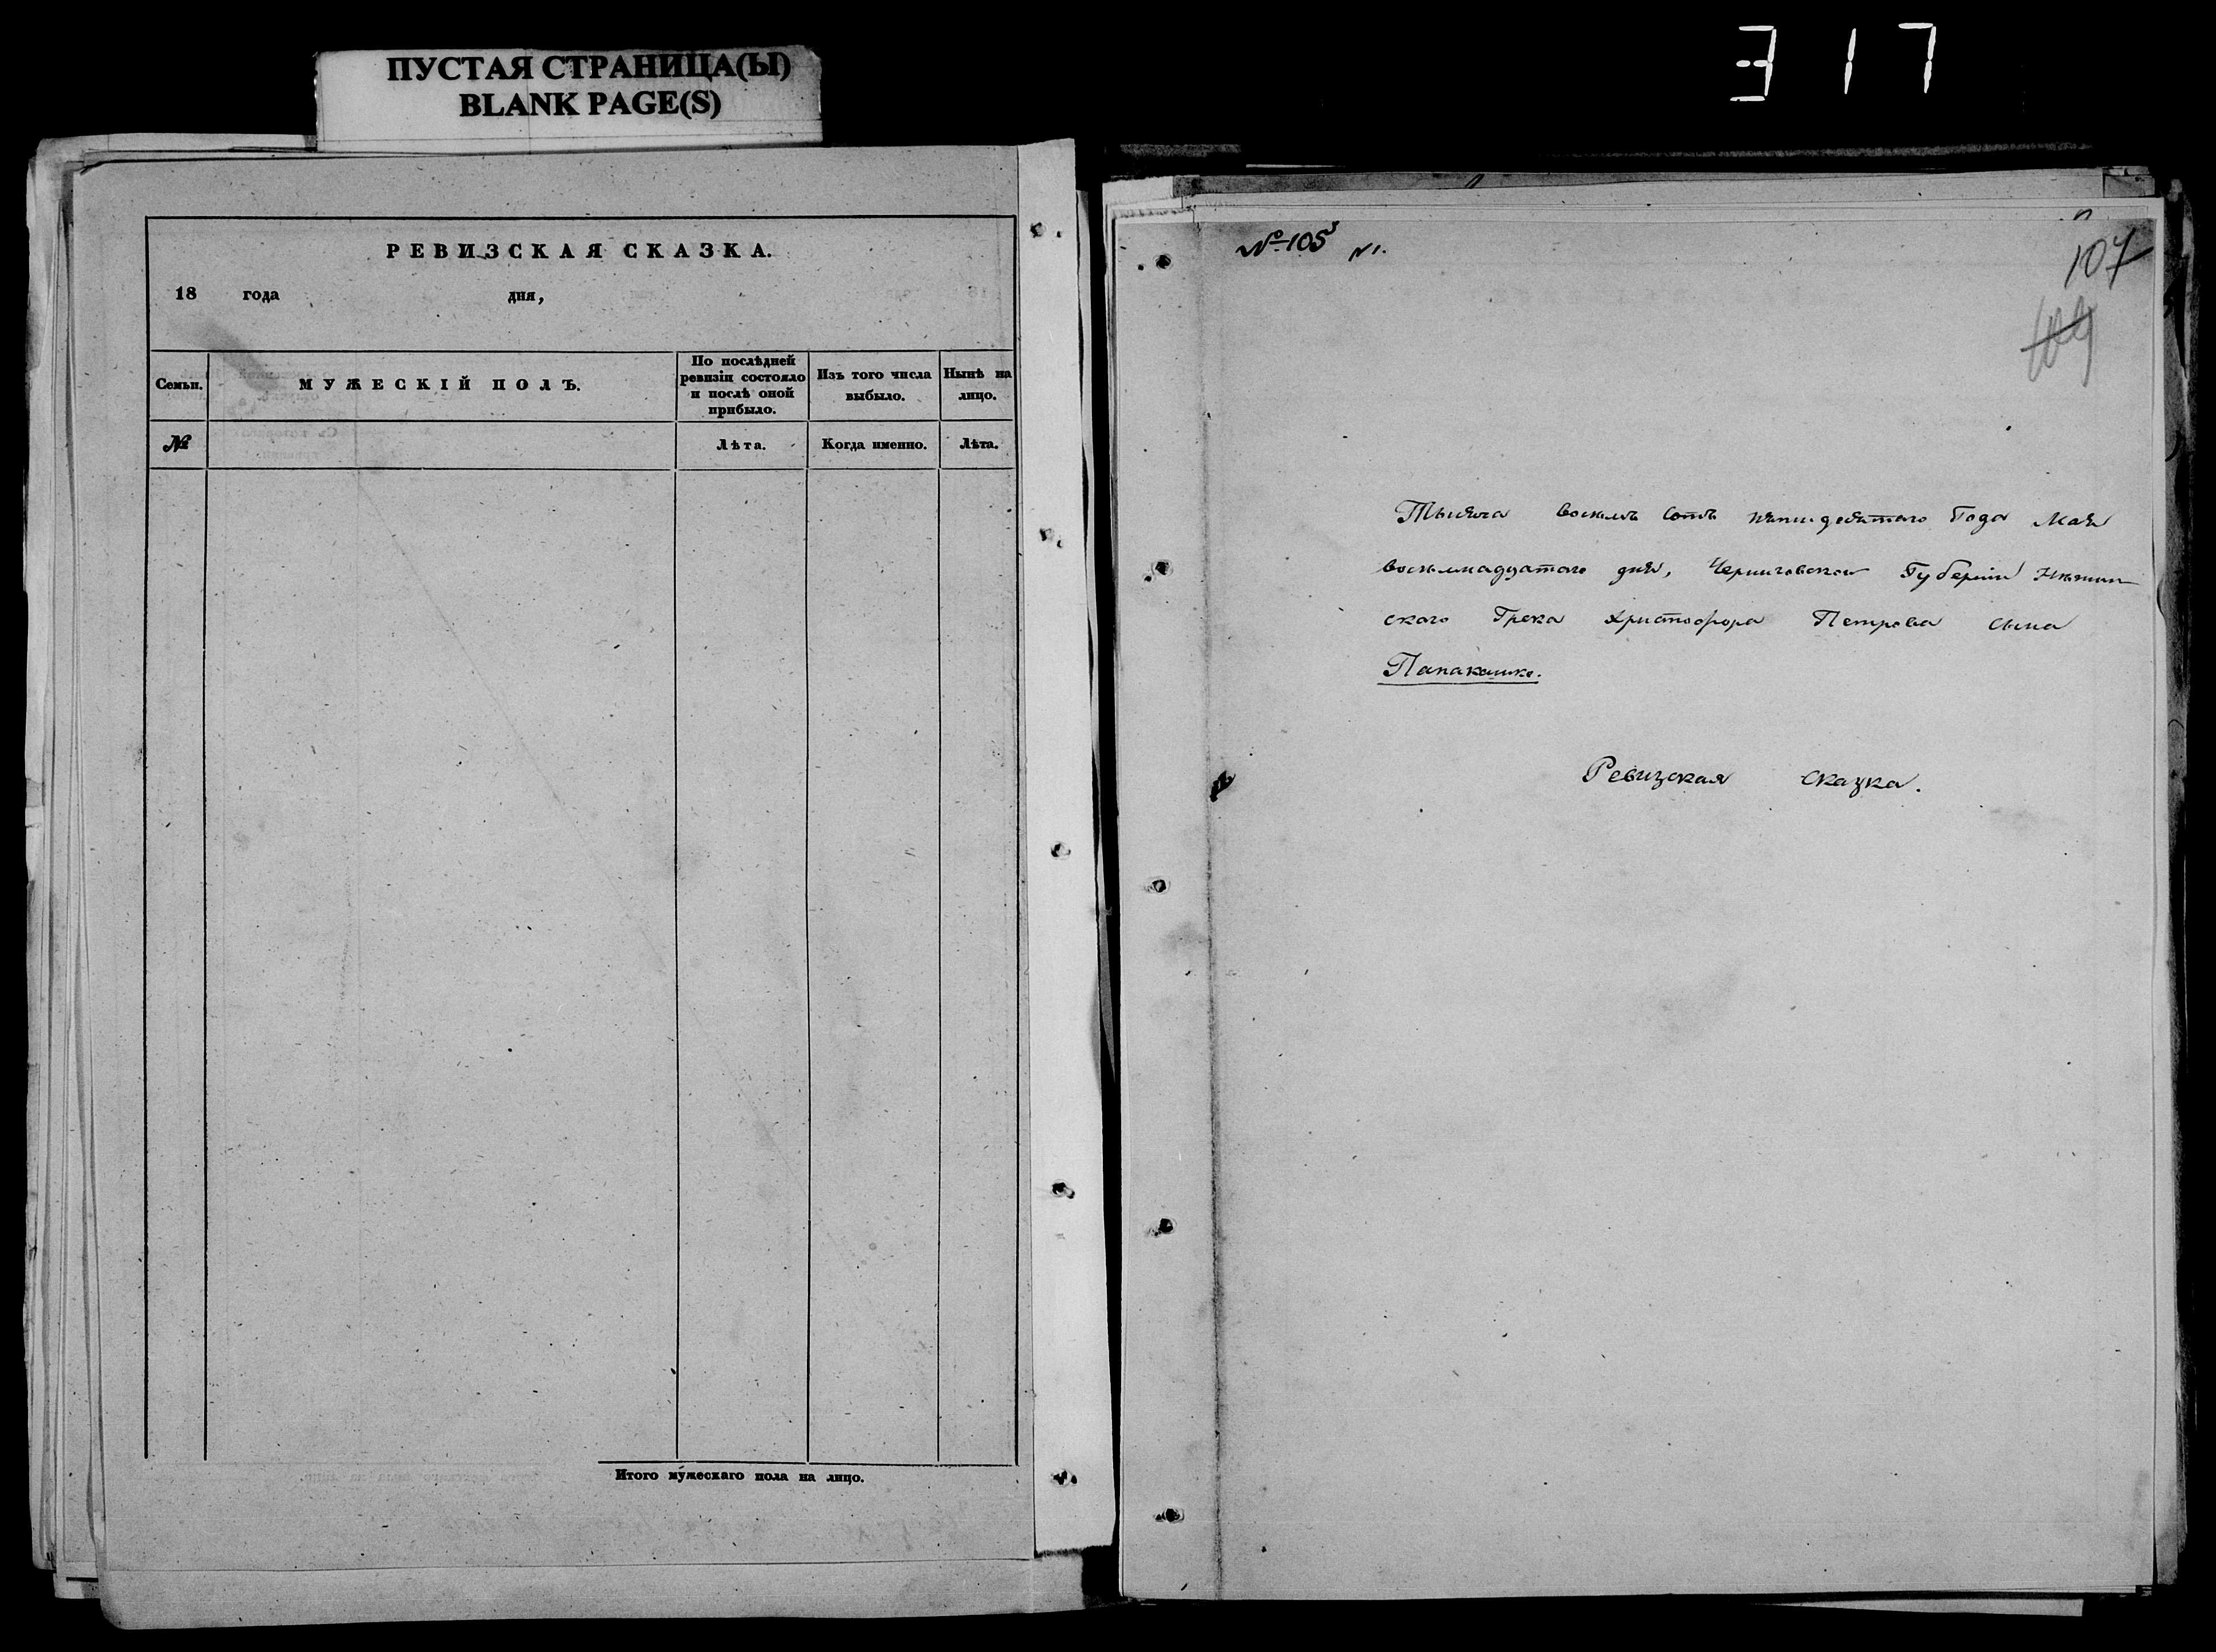 ПУСТАЯ СТРАНИЦА(Ы)
BLANK PAGE(S)
317
РЕВИЗСКАЯ СКАЗКА.
18 года дня,
Семьи.
МУЖЕСКІЙ ПОЛЪ.
По послѣдней
ревизіи состояло
и послѣ оной
прибыло.
Изъ того числа
выбыло.
Нынѣ на
лицо.
№
Лѣта.
Когда именно.
Лѣта.
Итого мужескаго пола на лицо.
№ 105
107
109
Тысяча восемь сотъ пятидесятого Года Мая
восьмнадцатого дня, Черниговской Губерніи Нѣжин
ского Грека Христофора Петрова сына
Ревизская сказка.